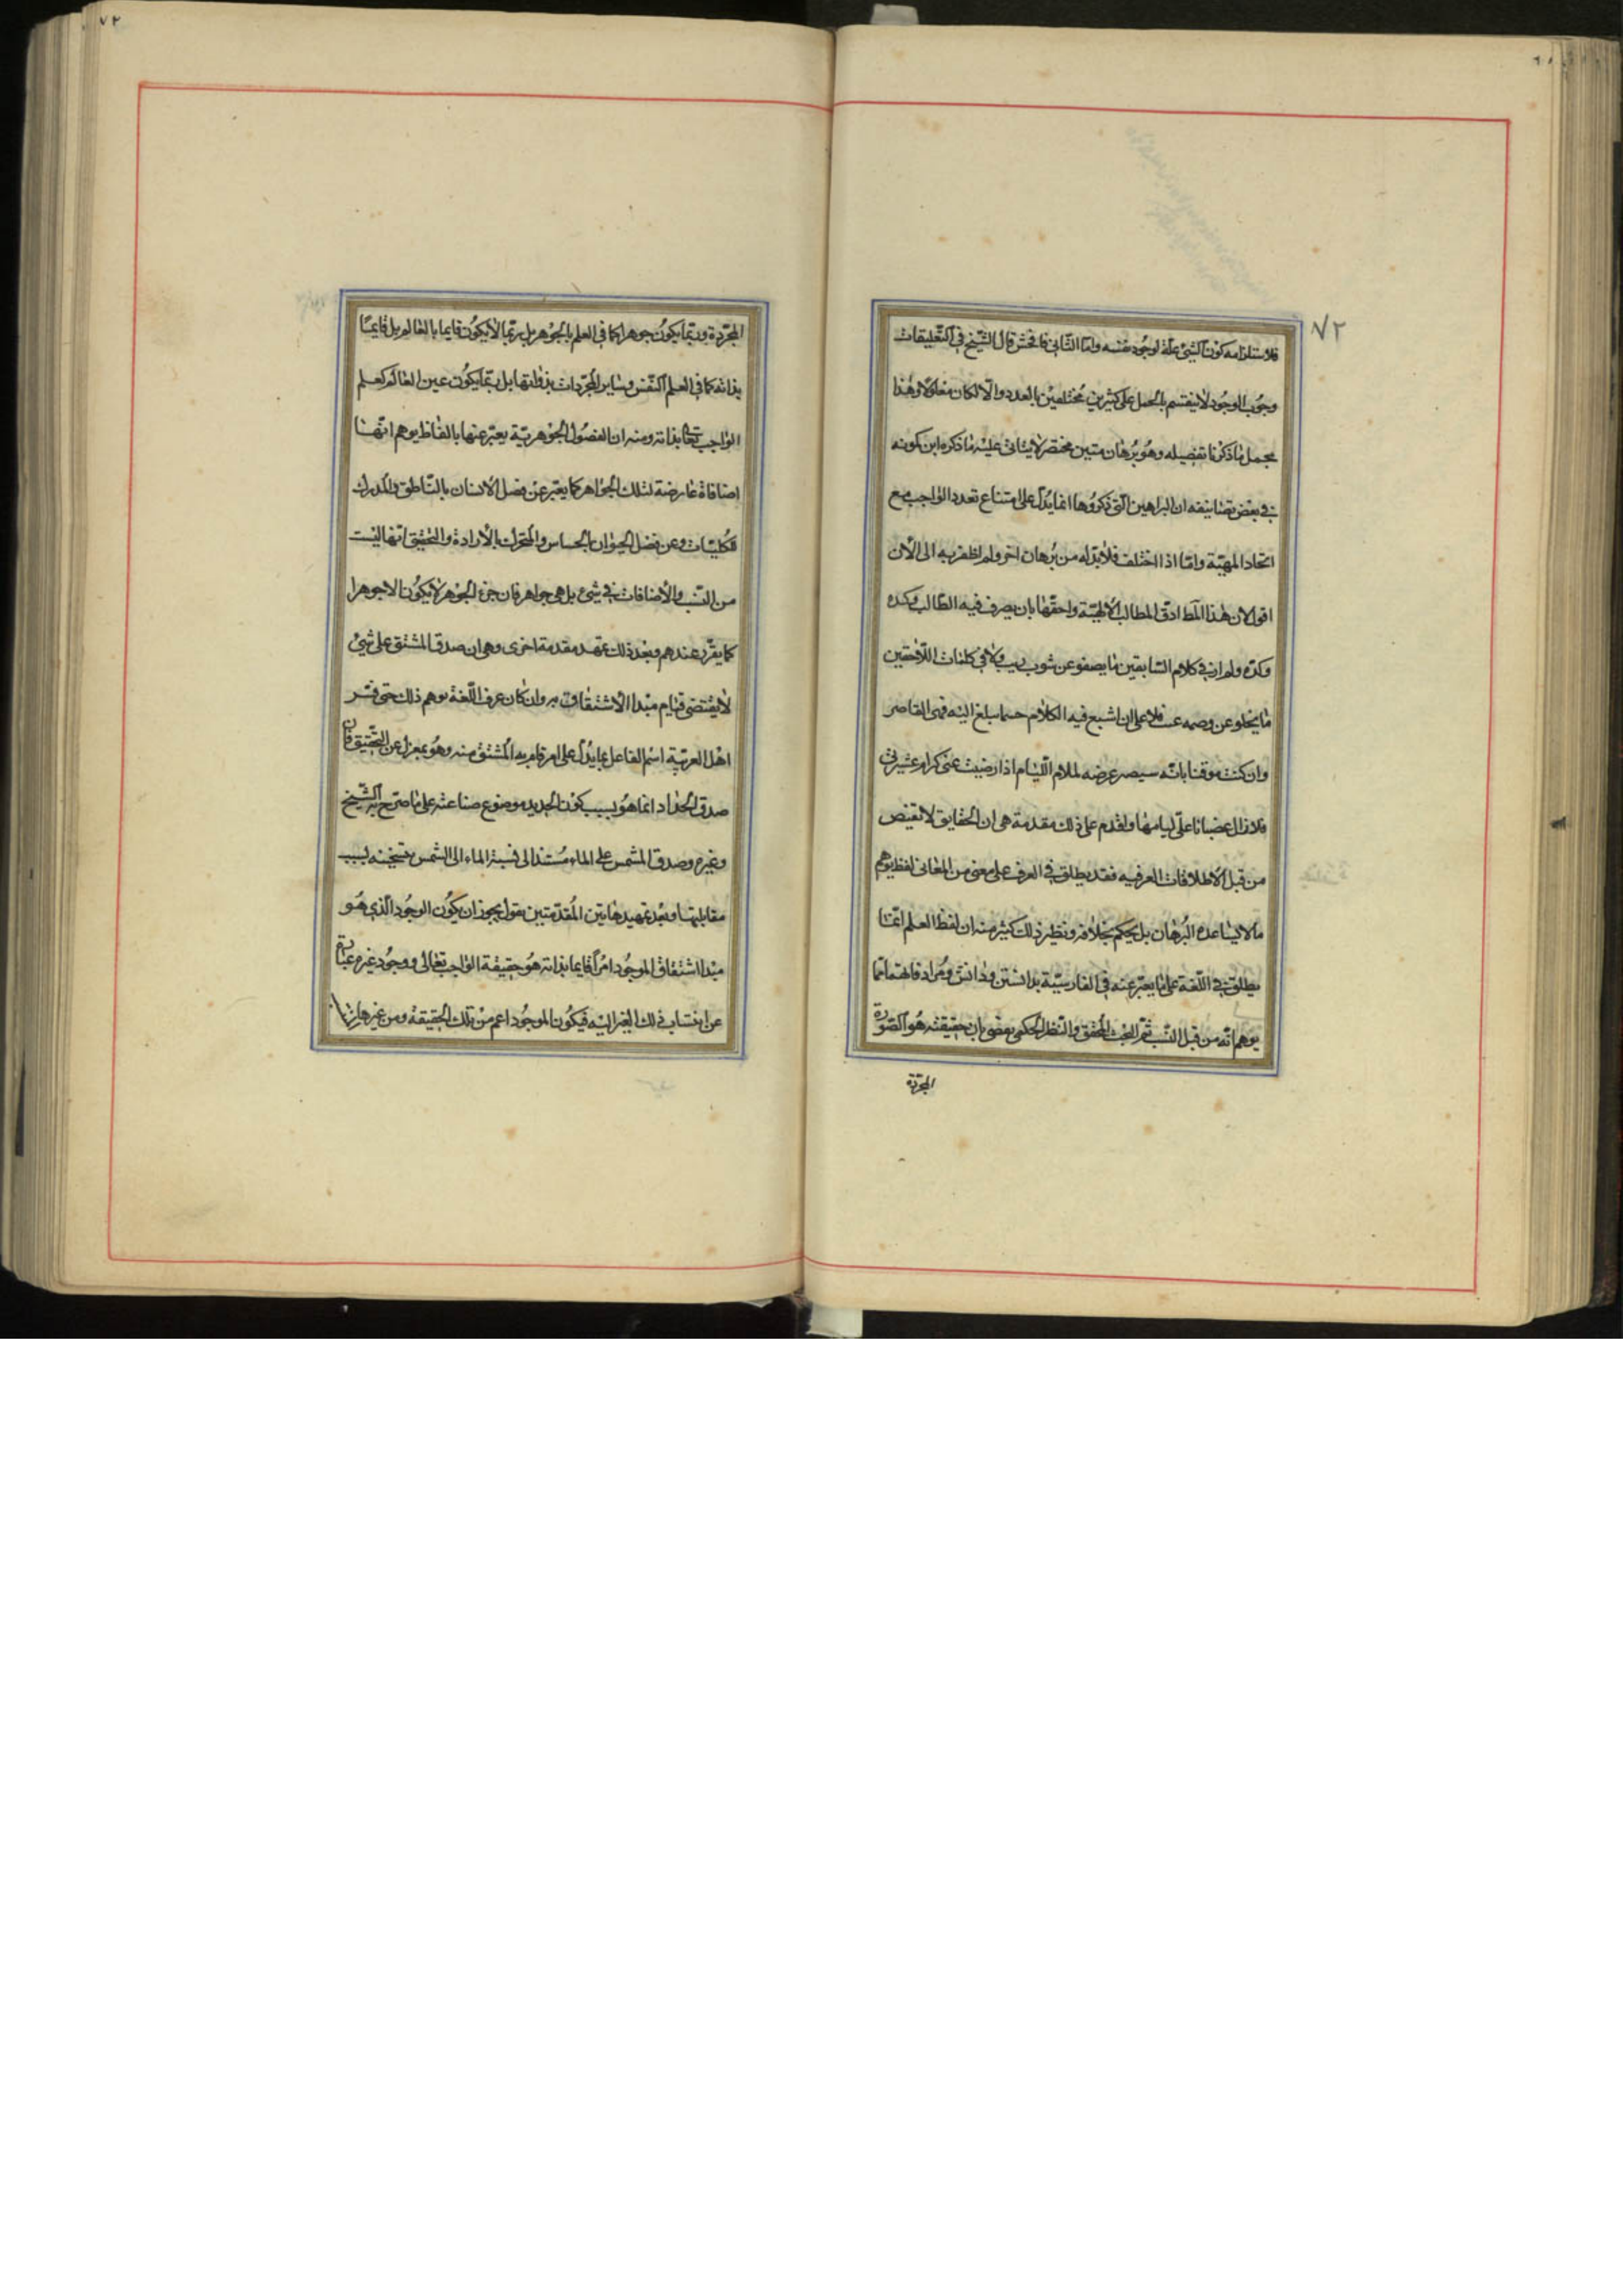 ٧٢
فلاستلزامه كون الشئ علة لوجود نفسه واما الثاني فافحش قال الشيخ في التعليقات
وجوب الوجود لا ينقسم بالحمل على كثيرين مختلفين بالعدد والا لكان معلولا وهذا
مجمل ما ذكرنا تفصيله وهو برهان متين مختصر لا يتاتى عليه ما ذكره ابن كمونه
في بعض تصانيفه ان البراهين التى ذكروها انما يدل على امتناع تعدد الواجب مع
اتحاد المهية واما اذا اختلف فلا بد له من برهان اخر ولم اظفر به الى الآن
اقول لان هذا المط ادق المطالب الالهية واحقها بان يصرف فيه الطالب وكده
وكده ولم ار في كلام السابقين ما يصفو عن شوب ريب ولا في كلمات اللاحقين
ما يخلو عن وصمه عيب فلا على ان اشبع فيه الكلام حسبما بلغ اليه فهمى القاصر
وان كنت موقنا بانه سيصير عرضه لملام اللئام اذا رضيت عنى كرام عشيرتي
فلا زال غضبانا على ليامها ولنقدم على ذلك مقدمة هى ان الحقايق لا تقتنص
من قبل الاطلاقات العرفيه فقد يطلق في العرف على معنى من المعانى لفظ يوهم
ما لا يساعده البرهان بل يحكم بخلافه ونظير ذلك كثير منه ان لفظ العلم انما
يطلق في اللغة على ما يعبر عنه في الفارسية بدانستن ودانش ومرادفاتهما مما
يوهم انه من قبل النسب ثم البحث المحقق والنظر الحكمى يقضى بان حقيقته هو الصورة
المجردة
٧٢
المجردة وربما يكون جوهرا كما في العلم بالجوهر بل ربما لا يكون قايما بالعالم بل قايما
بذاته كما في العلم النفس وساير المجردات بذواتها بل ربما يكون عين العالم كعلم
الواجب تعالى بذاته ومنه ان الفصول الجوهرية يعبر عنها بالفاظ يوهم انها
اضافات عارضة لتلك الجواهر كما يعبر عن فصل الانسان بالناطق والمدرك
للكليات وعن فصل الحيوان بالحساس والمتحرك بالارادة والتحقيق انها ليست
من النسب والاضافات في شئ بل هى جواهر فان جزء الجوهر لا يكون الا جوهرا
كما يقرر عندهم وبعد ذلك نمهد مقدمة اخرى وهى ان صدق المشتق على شئ
لا يقتضى قيام مبدا الاشتقاق به وان كان عرف اللغة يوهم ذلك حتى فسر
اهل العربية اسم الفاعل بما يدل على امر قام به المشتق منه وهو بمعزل عن التحقيق فان
صدق الحداد انما هو بسبب كون الحديد موضوع صناعته على ما صرح به الشيخ
وغيره وصدق المشمس على الماء مستند الى نسبة الماء الى الشمس بتسخينه بسبب
مقابلتها وبعد تمهيد هاتين المقدمتين نقول يجوز ان يكون الوجود الذى هو
مبدا اشتقاق الموجود امرا قايما بذاته هو حقيقة الواجب تعالى ووجود غيره عبارة
عن انتساب ذلك الغير اليه فيكون الموجود اعم من تلك الحقيقة ومن غيرها